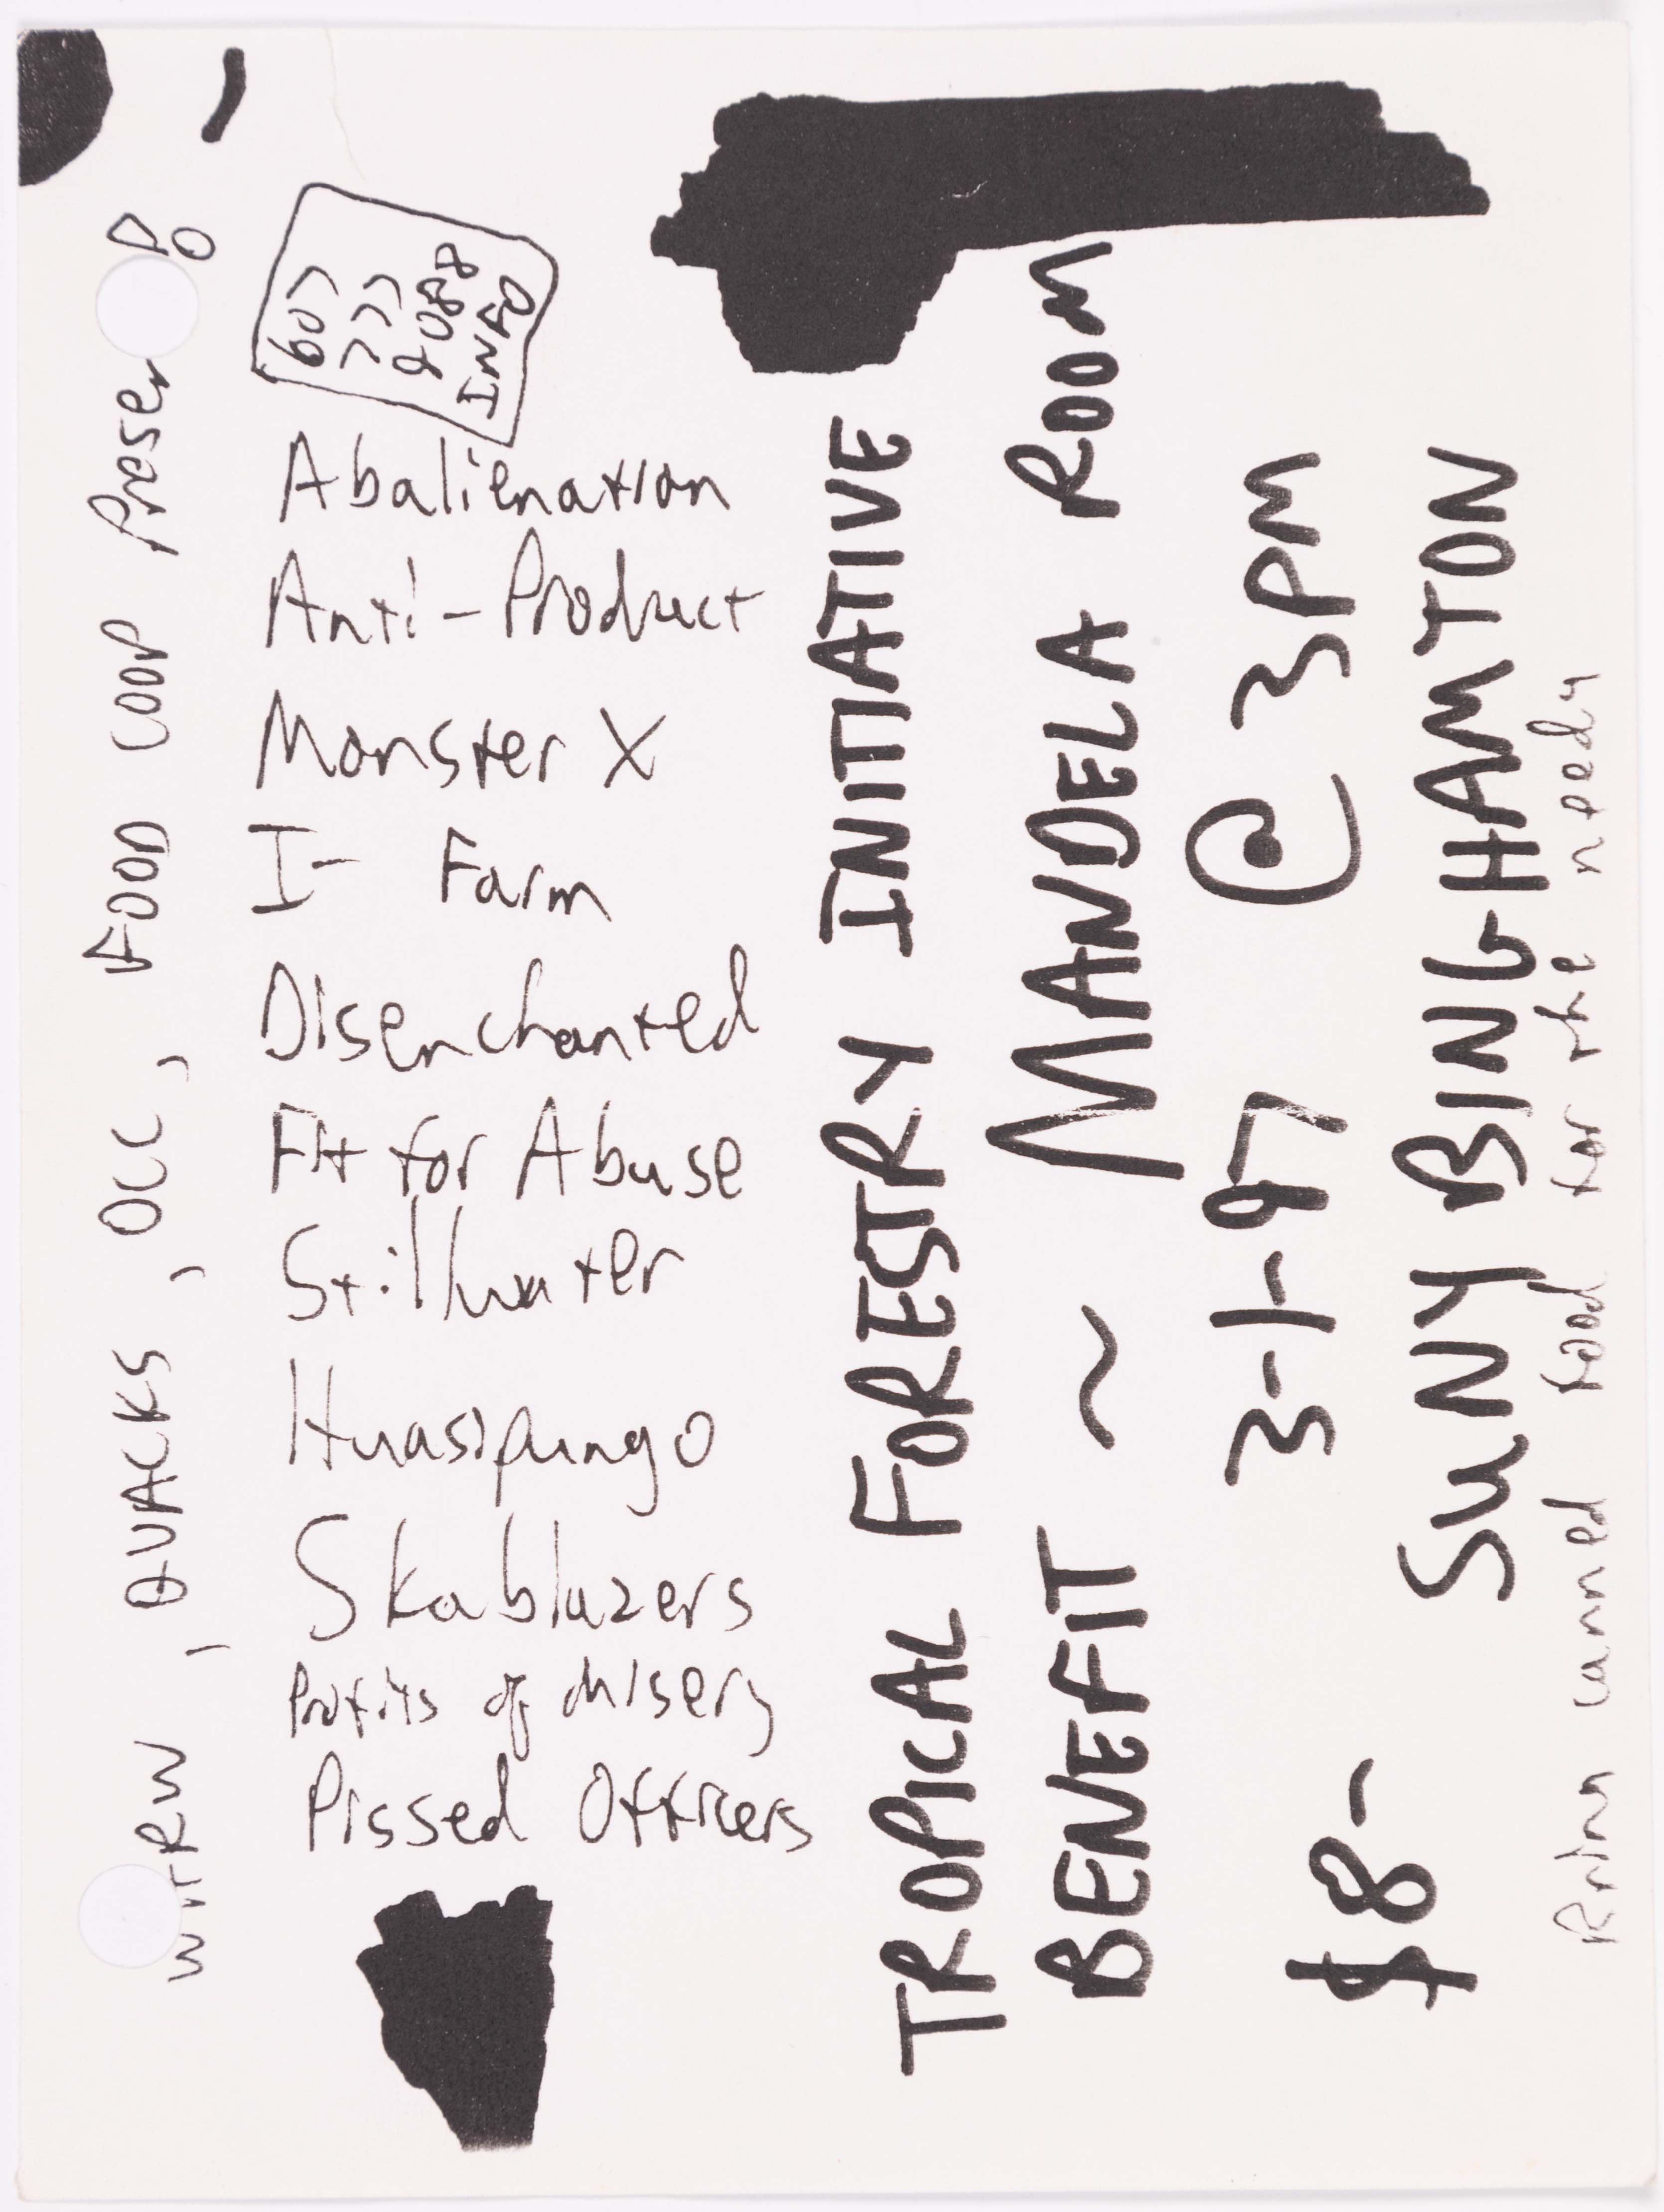 WHRW, QUACKS, OCC, FOOD COOP Presen
Abalienation
Anti-Product
Monster X
I- Farm
Disenchanted
Fit for Abuse
Stillwater
Huasipungo
Skablazers
Profits of Misery
Pissed Officers
607
777
9088
INFO
TROPICAL FORESTRY INITIATIVE
BENEFIT ~ MANDELA ROOM
$8- 3-1-97 @ 3PM
SUNY BINGHAMTON
Bring canned food for the needy